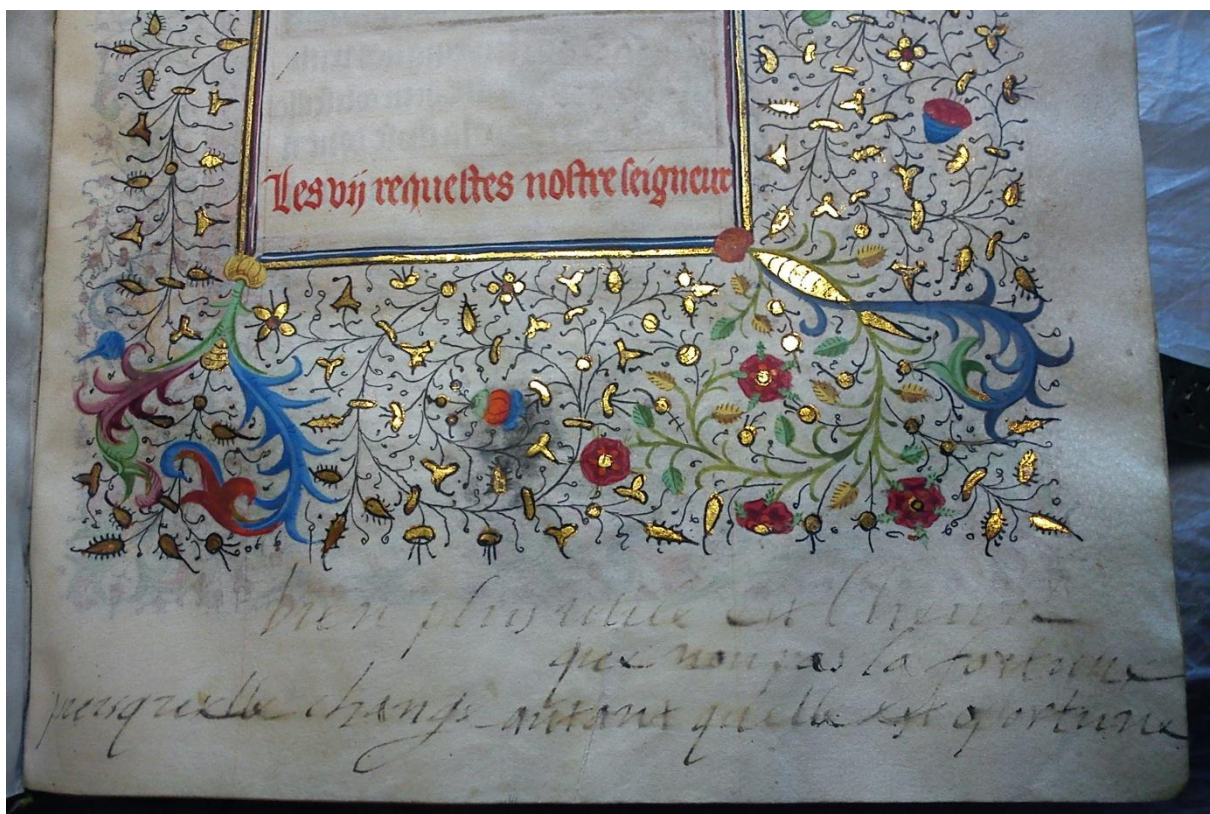 Les vij requestes nostre seigneur
bien plus utile est lheure
que non pas la fortune
puisquelle change autant quelle est oportune